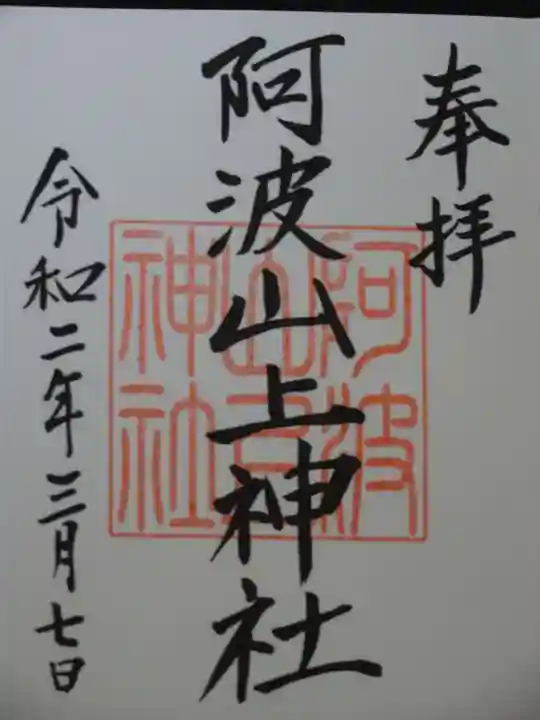 奉拝
阿波山上神社
令和二年三月七日
阿波
山上
神社